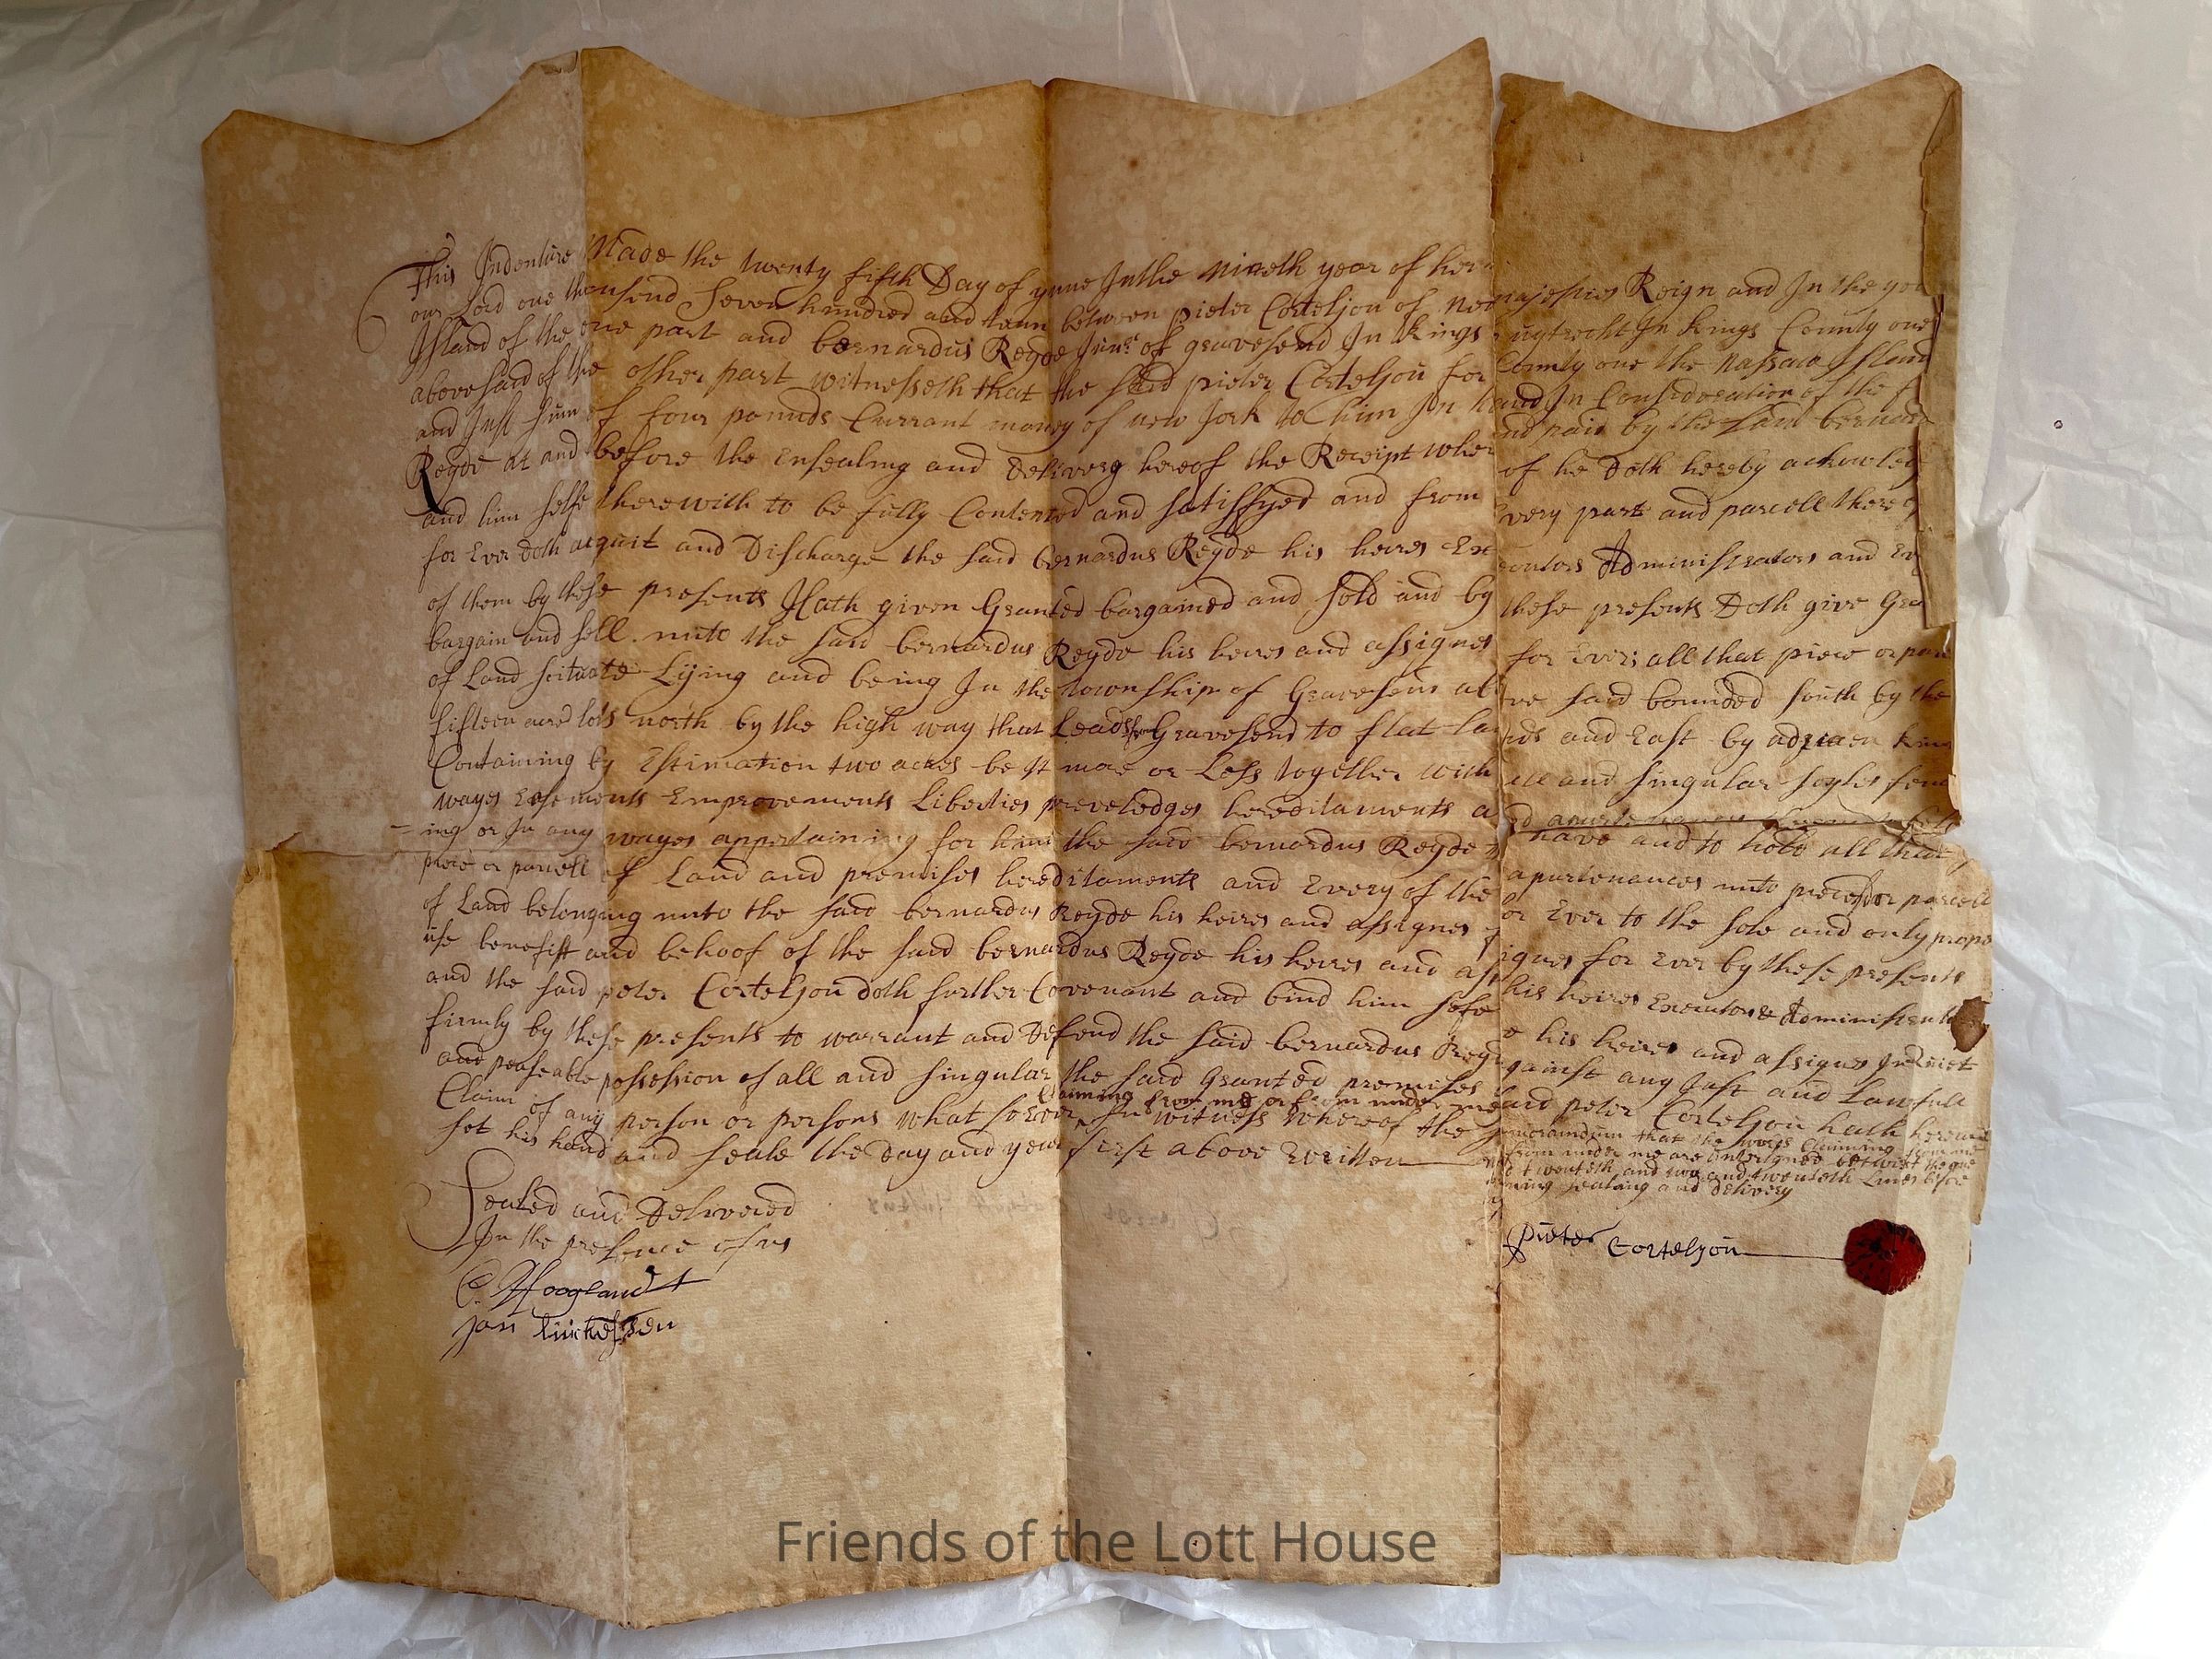 This Indenture Made the twenty fifth Day of yune Inthe Nineth year of her majesties Reign and In the
our Lord one thousend Seven hundred and tenn between pieter Corteljou of New uytrecht In Kings County one
Island of the one part and bernardus Reyde Junr of gravesend In Kings County one the nassaw Island
abovesaid of the other part witnesseth that the said pieter Corteljou for and In Consideration of the
and Just sum of four pounds Currant money of new york to him In hand paid by the said bernard
Reyde at and before the Ensealing and Delivery hereof the Receipt whereof he doth hereby acknowledg
and him selfe therewith to be fully Contented and satissfyed and from Every part and parcell thereof
for Ever doth acquit and Discharge the said bernardus Reyde his heires Executors Administrators and
of them by these presents Hath given Granted bargained and sold and by these presents Doth give
bargain and sell unto the said bernardus Reyde his heires and assignes for Ever all that piece or
of Land scituate Lying and being In the township of Gravesend above said bounded south by the
fifteen acred lots north by the high way that Leads from Gravesend to flat lands and East by
Containing by Estimation two acres be It more or Less together with all and singular
wayes Easements Emprovements Liberties preveledges hereditaments and
ing or In any wayes appertaining for him the said bernardus Reyde have and to hold all that
piece or parcell of Land and premises hereditaments and Every of the apurtenances unto piece or parcell
of Land belonging unto the said bernardus Reyde his heires and assignes for Ever to the sole and only
use benefitt and behoof of the said bernardus Reyde his heires and assignes for Ever by these presents
and the said peter Corteljou doth further Covenant and bind him selfe his heires Executors &
firmly by these presents to warrant and Defend the said bernardus his heires and assigns In
and peaseable possession of all and singular the said Granted premises against any Just and Lawfull
Claiming from me or from under me
Claim of any person or persons what soever In witness whereof the said peter Corteljou hath
set his hand and seale the day and year first above written
memorandum that the words Claiming from me
from under me are betwixt the one
and twentieth and two and twentieth Lines before
sealing and delivery
Sealed and Delivered
In the presence of us
C. Hoogland
Jan
pieter Corteljou
Friends of the Lott House